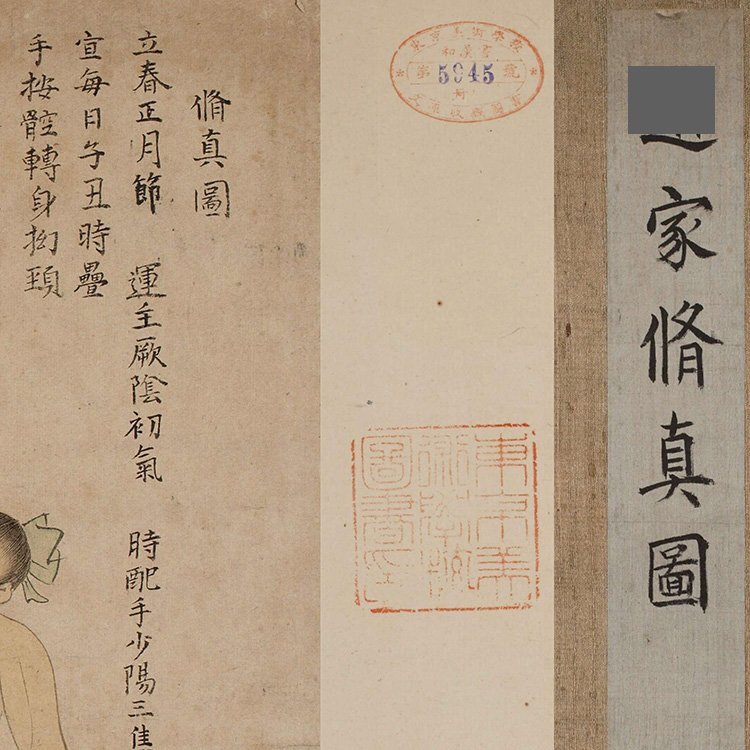 脩真圖
立春正月節 運主厥陰初氣 時配手少陽三
宜每日子丑時疊
手按 轉身拗頸
東京美術學校
和漢書
第 5945 號
東京美
術學校
圖書印
家脩真圖